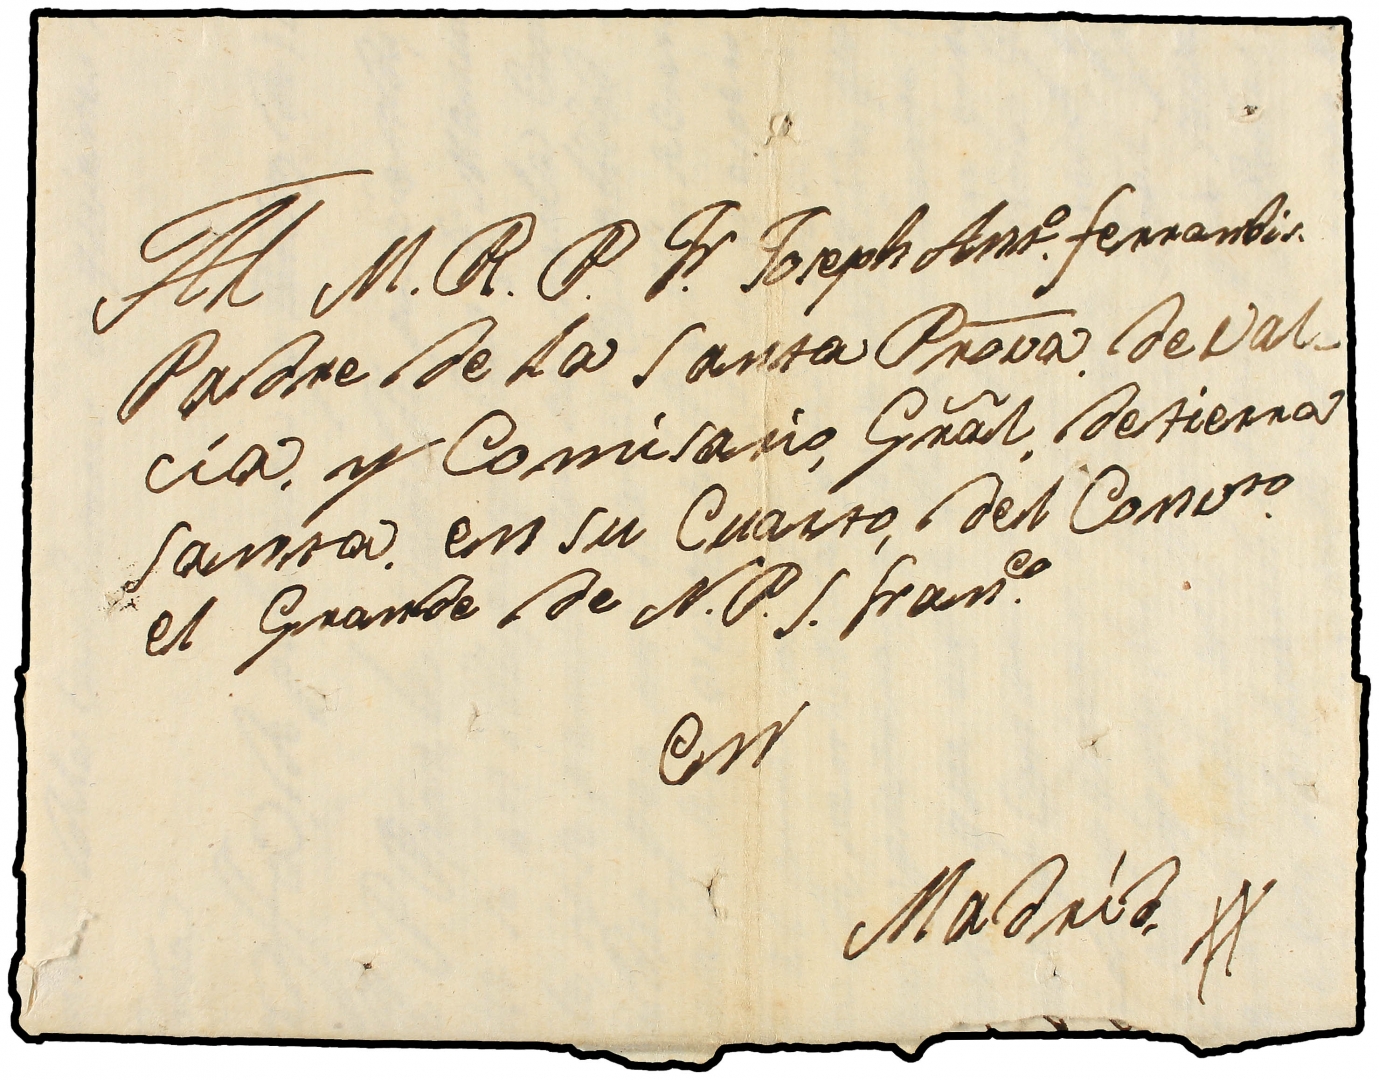 Al M. R. P. Fr. Joseph Antº. ferrandis.
Padre de la Santa Prova. de Val-
cia. y Comisario, Gñàl, de tierra
Santa. en su Cuarto, del Convto.
el Grande de N. P. S. franco.
en
Madrid.